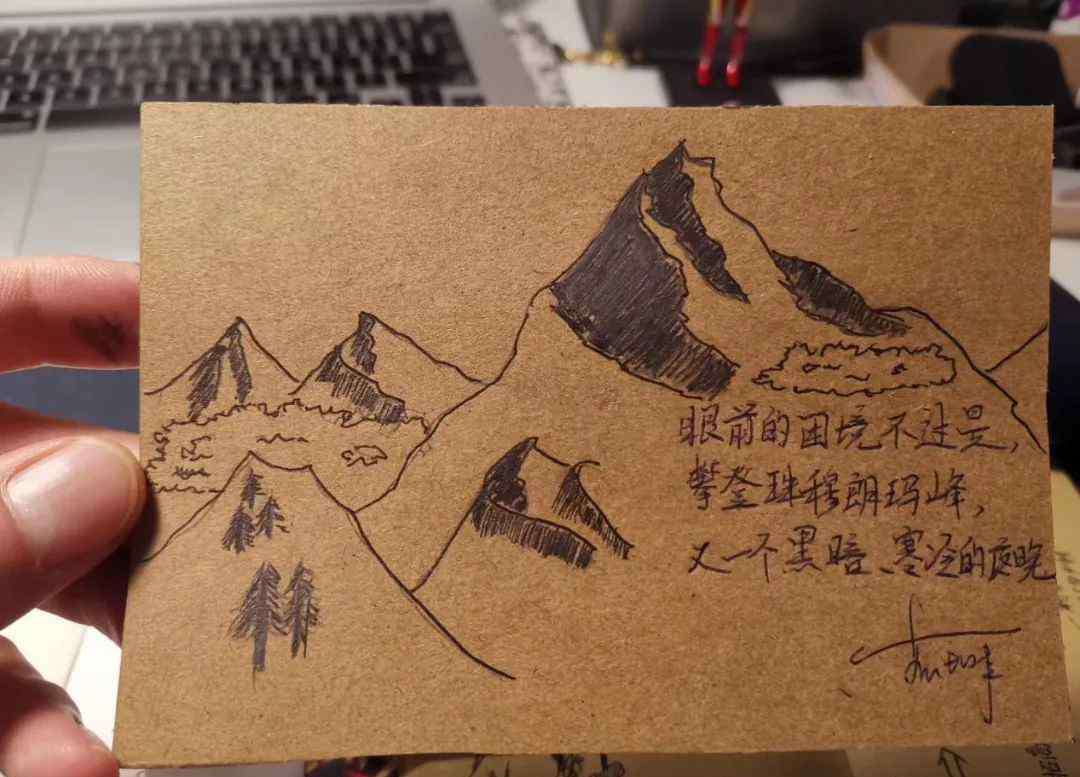 眼前的困境不过是,
攀登珠穆朗玛峰,
又一个黑暗、寒冷的夜晚